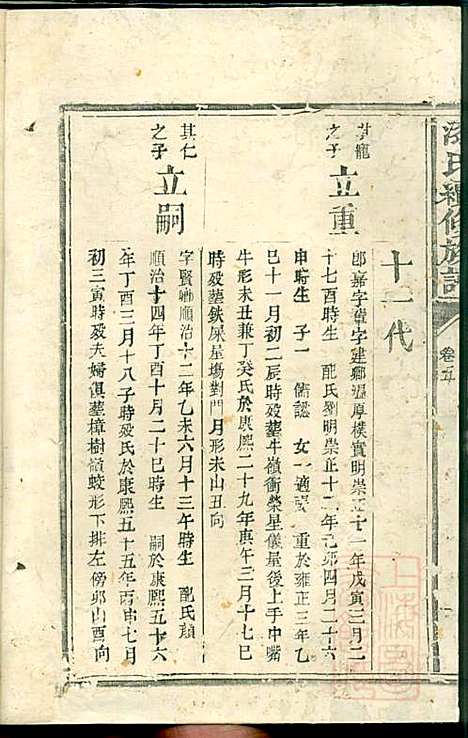 氏續修族譜
卷五
十一代
龍之子
立重
郎嘉字賓字建鄉溫厚樸實明崇正十一年戊寅三月二
十七酉時生 配氏劉明崇正十二年己卯四月二十六
申時生 子一 儲認 女一適 重於雍正三年乙
巳十一月初二辰時歿塟牛嶺衝榮星儀屋後上手中嘴
牛形未丑兼丁癸氏於康熙二十九年庚午三月十七巳
時歿塟鉄屎星塲對門月形未山丑向
其仁之子
立嗣
字賢 順治十二年乙未六月十三午時生 配氏顏
順治十四年丁酉十月二十巳時生 嗣於康熙五十六
年丁酉三月十八子時歿氏於康熙五十五年丙申七月
初三寅時歿夫婦俱塟樟樹嶺蛟形下排左傍卯山酉向